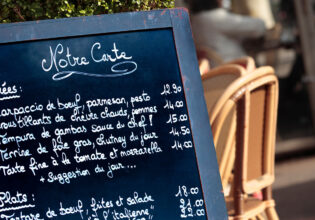 Notre Carte
ées :
arpaccio de boeuf, parmesan, pesto 12.00
roustillants de chèvre chauds, pommes 14.00
empura de gambas sauce du chef ! 15.00
errine de foie gras, chutney du jour 14.50
Tarte fine à la tomate et mozzarella 12.00
+ Suggestion du jour ...
Plats :
Tartare de boeuf, frites et salade 18.00
à l'italienne 22.00